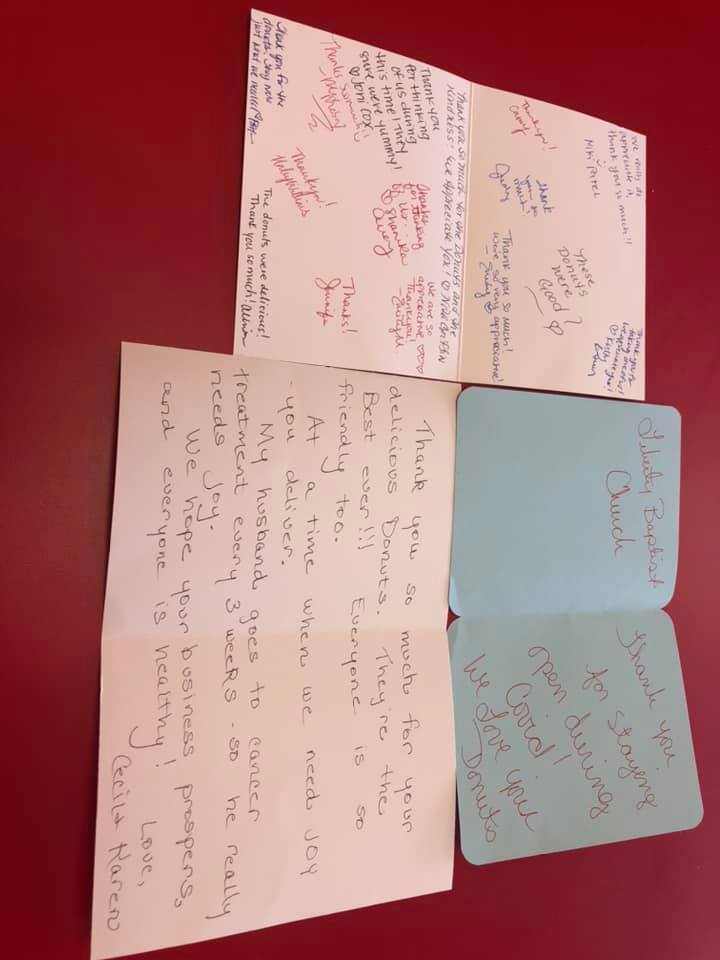 We really do
appreciate it,
thank you so much!!
Miki Patel
Thankyou!
Casey
Thank
you so
much!
Judy
These
Donuts
were
Good?
Thank you so much!
were so very appreciative!
Thank you so much for the Donuts and the
Kindness! We Appreciate You!
Thank you
for thinking
of us during
this time! They
sure were yummy!
Joni Cox!
Thanks so much!
Thank you for the
donuts. They were
just what we needed!
Thanks
for thinking
of us..
Shanika
Thankyou!
we are so
appreciative
Thankyou!
Thanks!
The donuts were delicious!
Thank you so much!
Liberty Baptist
Church
Thank you
for staying
open during
Covid!
We Love your
Donuts
Thank you so much for your
delicious Donuts. They're the
Best ever!!! Everyone is so
friendly too.
At a time when we need joy
-you deliver.
My husband goes to cancer
treatment every 3 weeks - so he really
needs joy.
We hope your business prospers,
and everyone is healthy!
Love,
Cecil & Karen